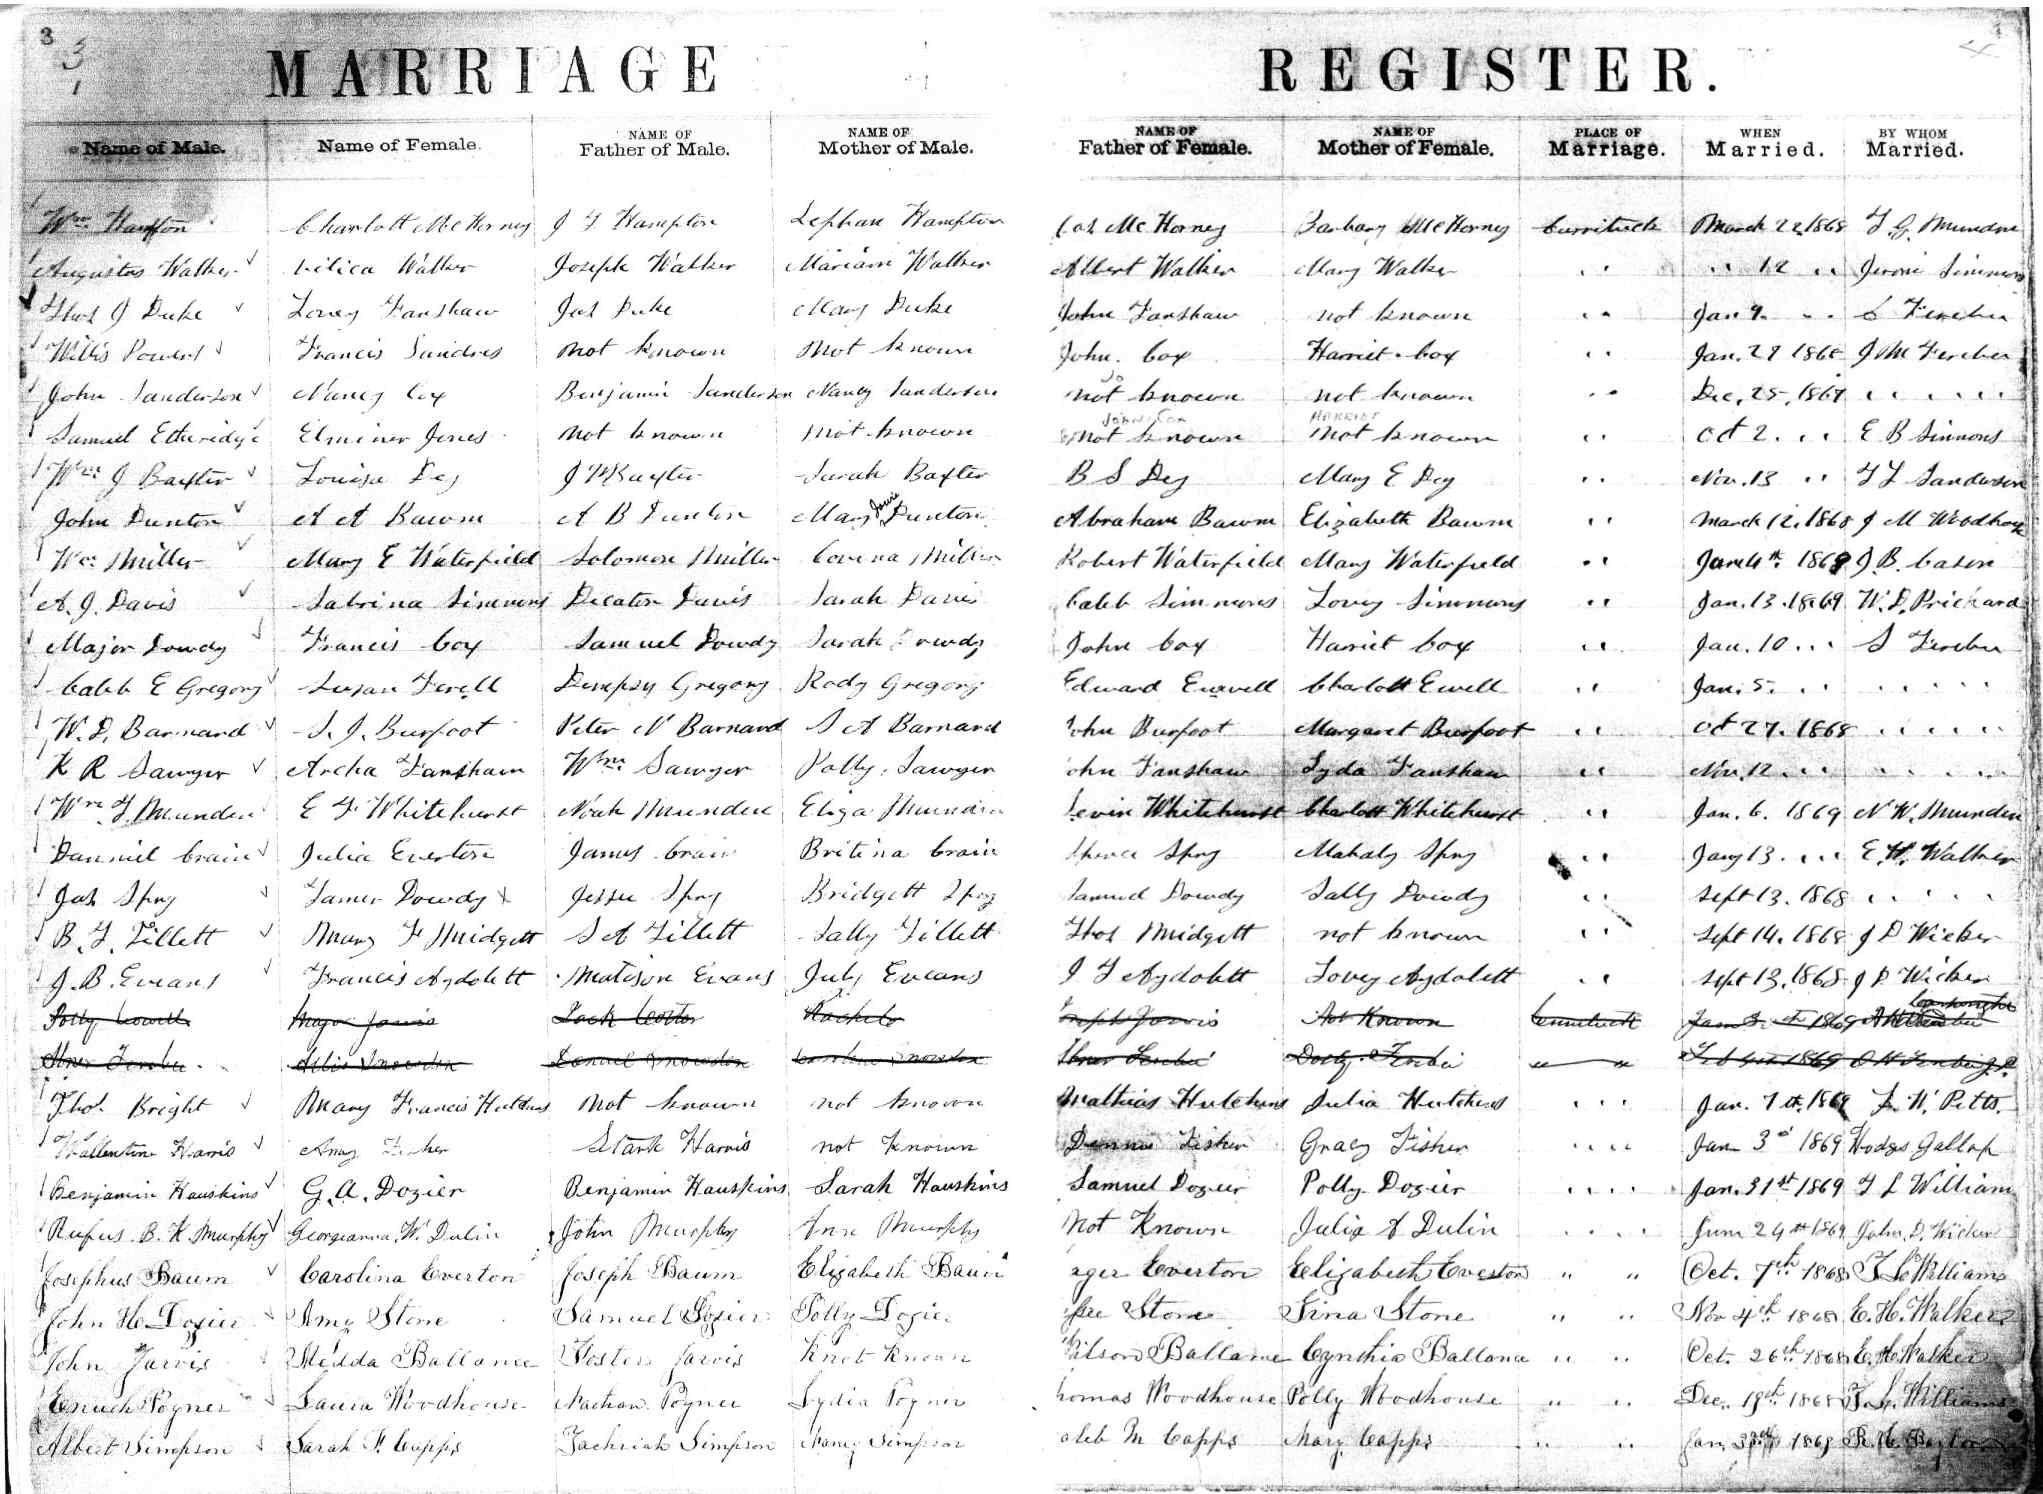 3
3
1
MARRIAGE REGISTER.
Name of Male. Name of Female. NAME OF Father of Male. NAME OF Mother of Male. NAME OF Father of Female. NAME OF Mother of Female. PLACE OF Marriage. WHEN Married. BY WHOM Married.
Wm Hampton Charlott McHorney J T Hampton Hampton McHorney Barbary McHorney Currituck March 22, 1868 Munden
Augustus Walker Walker Joseph Walker Mariam Walker Albert Walker Mary Walker " 12 " Simmons
Thos J Duke Lovey Fanshaw Jas Duke Mary Duke John Fanshaw not known " Jan 9. " Ferebee
Willis Powers Francis Sandres not known not known John Cox Harriet Cox " Jan. 29 1868 J M Ferebee
John Sanderson Nancy Cox Benjamin Sanderson Nancy Sanderson not known not known " Dec. 25, 1867 " "
John Cox HARRIET
Samuel Etheridge Elminer Jones not known not known not known not known " Oct 2. " E B Simmons
Wm J Baxter Louisa Dey J Baxter Sarah Baxter B S Dey Mary E Dey " Nov. 13 " T L Sanderson
John Dunton A A Bawm A B Dunton Mary Jane Dunton Abraham Bawm Elizabeth Bawm " March 12, 1868 J M Woodhouse
Wm Miller Mary E Waterfield Solomon Miller Covina Miller Robert Waterfield Mary Waterfield " 1869 J. B. Cason
A. J. Davis Sabrina Simmons Decator Davis Sarah Davis Caleb Simmons Lovey Simmons " Jan. 13. 1869 W. D. Prichard
Major Dowdy Francis Cox Samuel Dowdy Sarah Dowdy John Cox Harriet Cox " Jan. 10 " S Ferebee
Caleb E Gregory Susan Ferell Dempsy Gregory Rody Gregory Edward Ewell Charlott Ewell " Jan. 5. " " "
W. D. Barnard S. J. Burfoot Peter N Barnard S A Barnard John Burfoot Margaret Burfoot " Oct 27. 1868 " "
K R Sawyer Archa Fanshaw Wm Sawyer Polly Sawyer John Fanshaw Lyda Fanshaw " Nov. 12 " " "
Wm T. Munden E F Whitehurst Noah Munden Eliza Munden Levin Whitehurst Charlott Whitehurst " Jan. 6. 1869 N W. Munden
Danniel Crain Julia Everton James Crain Britina Crain Spry Mahaly Spry " Jany 13. " E. H. Walker
Jas Spry Tamer Dowdy Jesse Spry Bridgett Spry Samuel Dowdy Sally Dowdy " Sept 13. 1868 " "
B. T. Tillett Mary F Midgett S A Tillett Sally Tillett Thos Midgett not known " Sept 14. 1868 J D Wicker
J. B. Evans Francis Aydolett Matison Evans July Eveans J T Aydolett Lovey Aydolett " Sept 13. 1868 J D Wicker
Polly Cowell Major Jarvis Rachel Joseph Jarvis Not Known Currituck 1869
Snowden Samuel Snowden Caroline Snowden Abner Ferebee Dolly Ferebee " " Feb 1869
Thos. Bright Mary Francis Hutchins not known not known Mathias Hutchins Julia Hutchins " Jan. 7th. 1869 W. Pitts.
Wallentine Harris Amy Fisher Stark Harris not known Dennis Fisher Gracy Fisher " " Jan 3rd 1869 Hodges Gallop
Benjamin Hauskins G. A. Dozier Benjamin Hauskins Sarah Hauskins Samuel Dozier Polly Dozier " " Jan. 31st 1869 T L William
Rufus. B. K. Murphy Georgianna. W. Dulin John Murphy Ann Murphy Not Known Julia A Dulin " " June 24th 1869 John. D. Wicker
Josephus Baum Carolina Everton Joseph Baum Elizabeth Baum Everton Elizabeth Everton " " Oct. 7th 1868 T. L. Williams
John H. Dozier Amy Stone Samuel Dozier Polly Dozier Stone Tina Stone " " Nov 4th 1868 E. H. Walker
John Jarvis Medda Ballance Foster Jarvis Knot Known Wilson Ballance Cynthia Ballance " " Oct. 26th 1868 E. H. Walker
Enuch Poyner Laura Woodhouse Nathan Poyner Lydia Poyner Thomas Woodhouse Polly Woodhouse " " Dec. 1868 T. L. Williams
Albert Simpson Sarah F. Capps Zachriah Simpson Nancy Simpson Caleb M Capps Mary Capps " " Jan 1869